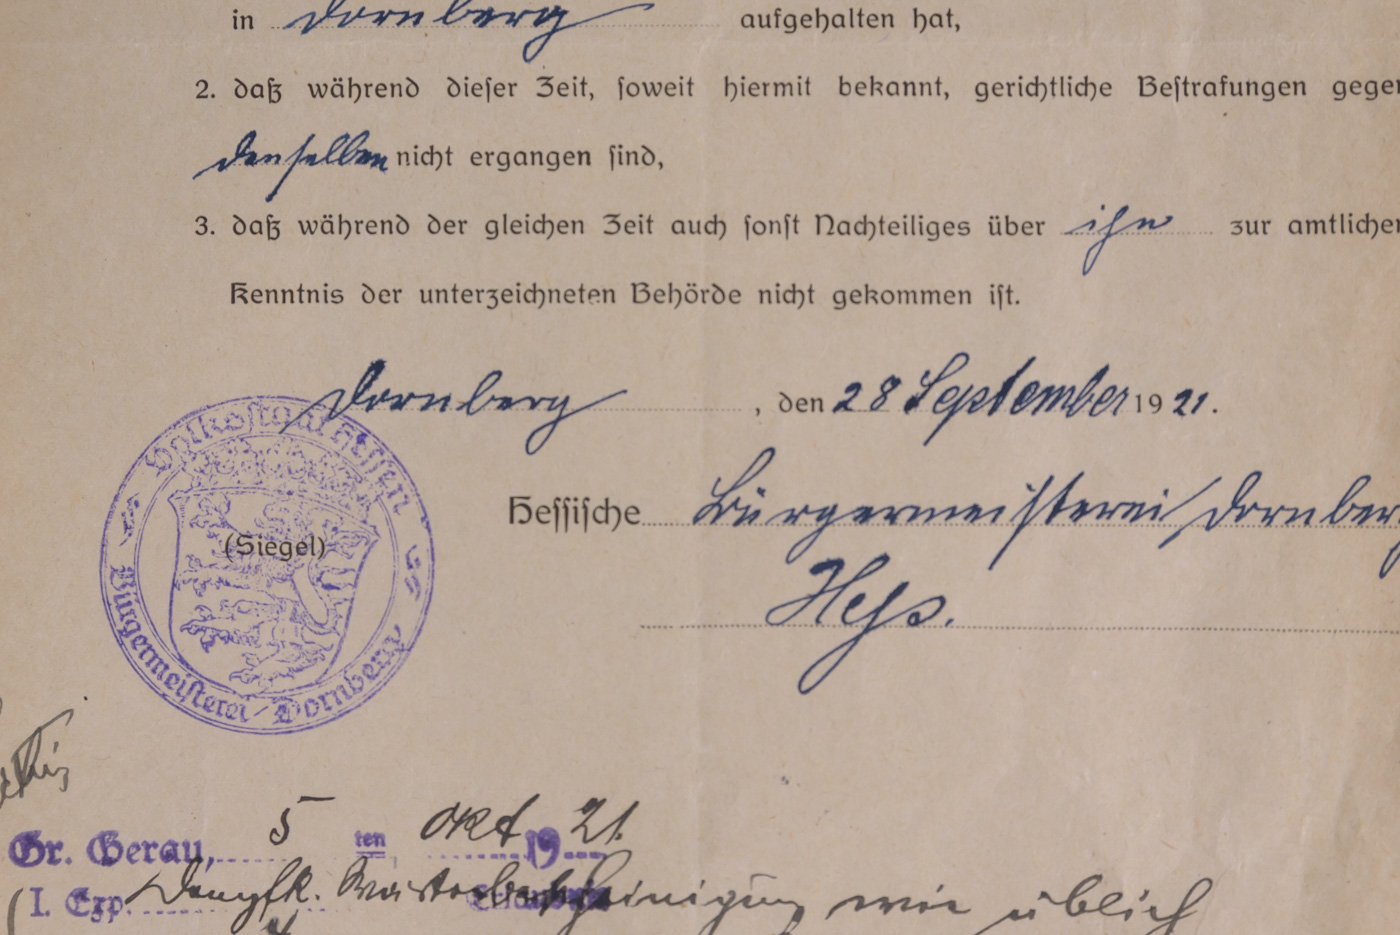 in Dornberg aufgehalten hat,
2. daß während dieser Zeit, soweit hiermit bekannt, gerichtliche Bestrafungen gegen
denselben nicht ergangen sind,
3. daß während der gleichen Zeit auch sonst Nachteiliges über ihn zur amtlichen
Kenntnis der unterzeichneten Behörde nicht gekommen ist.
Dornberg, den 28 September 1921.
Volksstaat Hessen
(Siegel)
Bürgermeisterei Dornberg
Hessische Bürgermeisterei Dornberg
Heß.
Gr. Gerau, 5 ten Okt 1921.
I. Exp. wie üblich